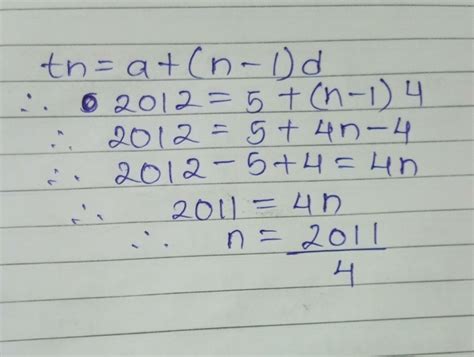 tn = a + (n - 1) d
∴ 2012 = 5 + (n - 1) 4
∴ 2012 = 5 + 4n - 4
∴ 2012 - 5 + 4 = 4n
∴ 2011 = 4n
∴ n = 2011
4